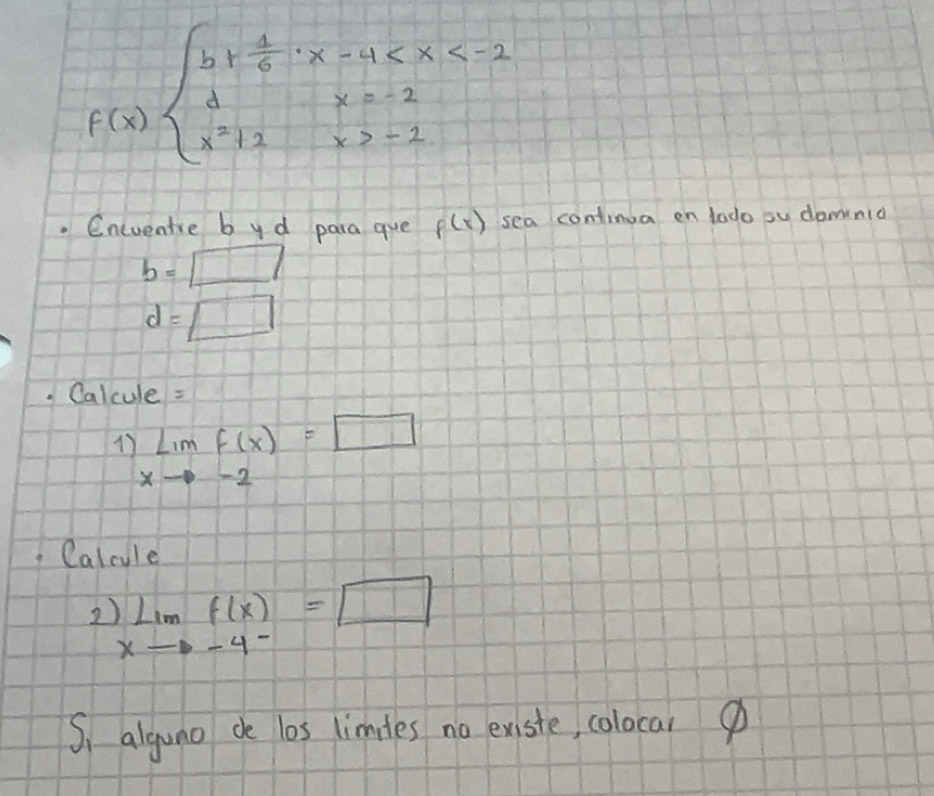 f(x) { b + 1/6 · x   -4 < x < -2
d   x = -2
x² + 2   x > -2
• Encuentre b y d para que f(x) sea continua en todo su dominio
b =
d =
• Calcule =
1) Lim f(x) =
x → -2
• Calcule
2) Lim f(x) =
x → -4⁻
Si alguno de los limites no existe, colocar ∅